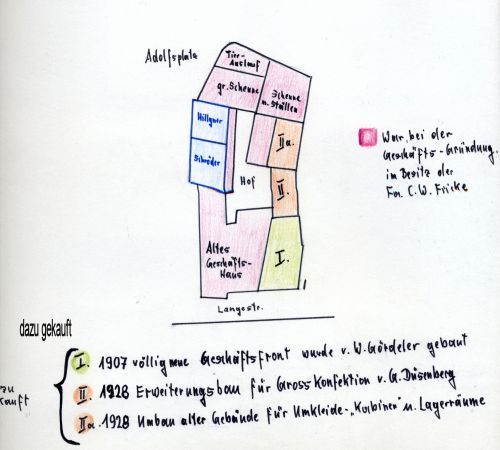 Adolfsplatz
Tier-
Auslauf
gr. Scheune
Scheune
u. Ställen
Höllgner
Schröder
IIa.
II.
Hof
I.
Altes
Geschäfts-
Haus
Langestr.
War bei der
Geschäfts-Gründung
im Besitz der
Fa. C. W. Fricke
dazu gekauft
zu
kauft
I. 1907 völlig neue Geschäftsfront wurde v. W. Gördeler gebaut
II. 1928 Erweiterungsbau für Gross Konfektion v. G. Düsenberg
IIa. 1928 Umbau alter Gebäude für Umkleide-"Kabinen" u. Lagerräume